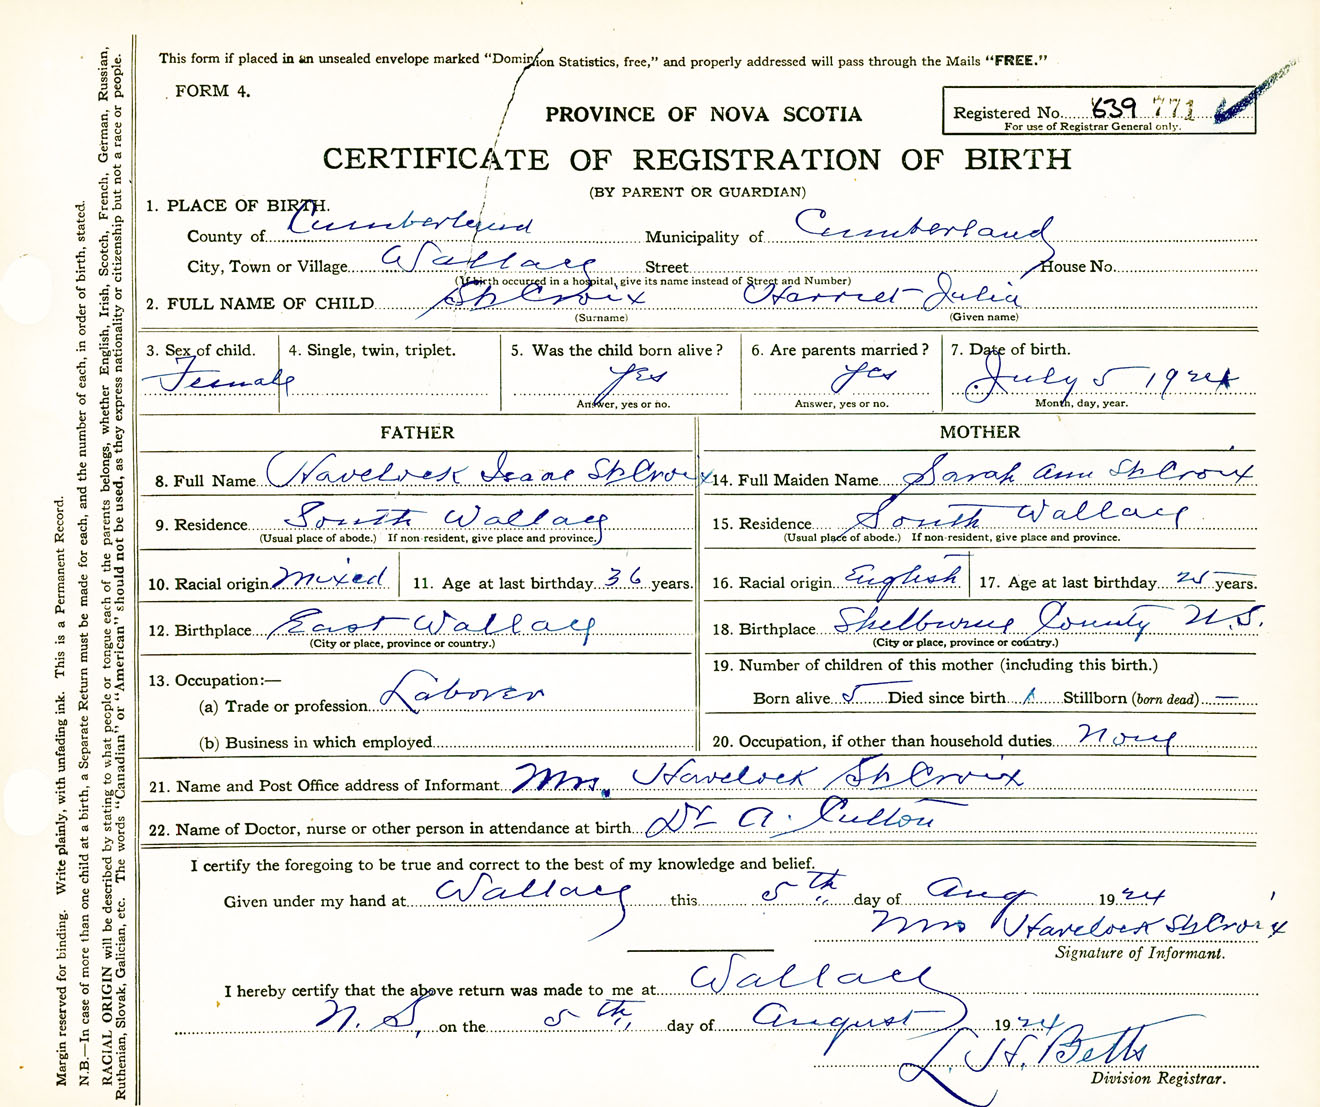 This form if placed in an unsealed envelope marked "Dominion Statistics, free," and properly addressed will pass through the Mails "FREE."
FORM 4.
PROVINCE OF NOVA SCOTIA
Registered No. 639 771
For use of Registrar General only.
CERTIFICATE OF REGISTRATION OF BIRTH
(BY PARENT OR GUARDIAN)
1. PLACE OF BIRTH.
County of Cumberland Municipality of Cumberland
City, Town or Village Wallace Street House No.
(If birth occurred in a hospital, give its name instead of Street and Number)
2. FULL NAME OF CHILD St Croix Harriet Julia
(Surname) (Given name)
3. Sex of child. 4. Single, twin, triplet. 5. Was the child born alive? 6. Are parents married? 7. Date of birth.
Female Yes Yes July 5 1924
Answer, yes or no. Answer, yes or no. Month, day, year.
FATHER MOTHER
8. Full Name Havelock Isaac St Croix 14. Full Maiden Name Sarah Ann St Croix
9. Residence South Wallace 15. Residence South Wallace
(Usual place of abode.) If non-resident, give place and province. (Usual place of abode.) If non-resident, give place and province.
10. Racial origin Mixed 11. Age at last birthday 36 years. 16. Racial origin English 17. Age at last birthday 25 years.
12. Birthplace East Wallace 18. Birthplace Shelburne County N.S.
(City or place, province or country.) (City or place, province or country.)
13. Occupation:— 19. Number of children of this mother (including this birth.)
(a) Trade or profession Laborer Born alive 5 Died since birth 1 Stillborn (born dead) —
(b) Business in which employed 20. Occupation, if other than household duties None
21. Name and Post Office address of Informant Mrs. Havelock St Croix
22. Name of Doctor, nurse or other person in attendance at birth Dr A. Cutton
I certify the foregoing to be true and correct to the best of my knowledge and belief.
Given under my hand at Wallace this 5th day of Aug 1924
Mrs Havelock St Croix
Signature of Informant.
I hereby certify that the above return was made to me at Wallace
N. S. on the 5th day of August 1924
L. H. Betts
Division Registrar.
Margin reserved for binding. Write plainly, with unfading ink. This is a Permanent Record.
N.B.—In case of more than one child at a birth, a Separate Return must be made for each, and the number of each, in order of birth, stated.
RACIAL ORIGIN will be described by stating to what people or tongue each of the parents belongs, whether English, Irish, Scotch, French, German, Russian,
Ruthenian, Slovak, Galician, etc. The words "Canadian" or "American" should not be used, as they express nationality or citizenship but not a race or people.